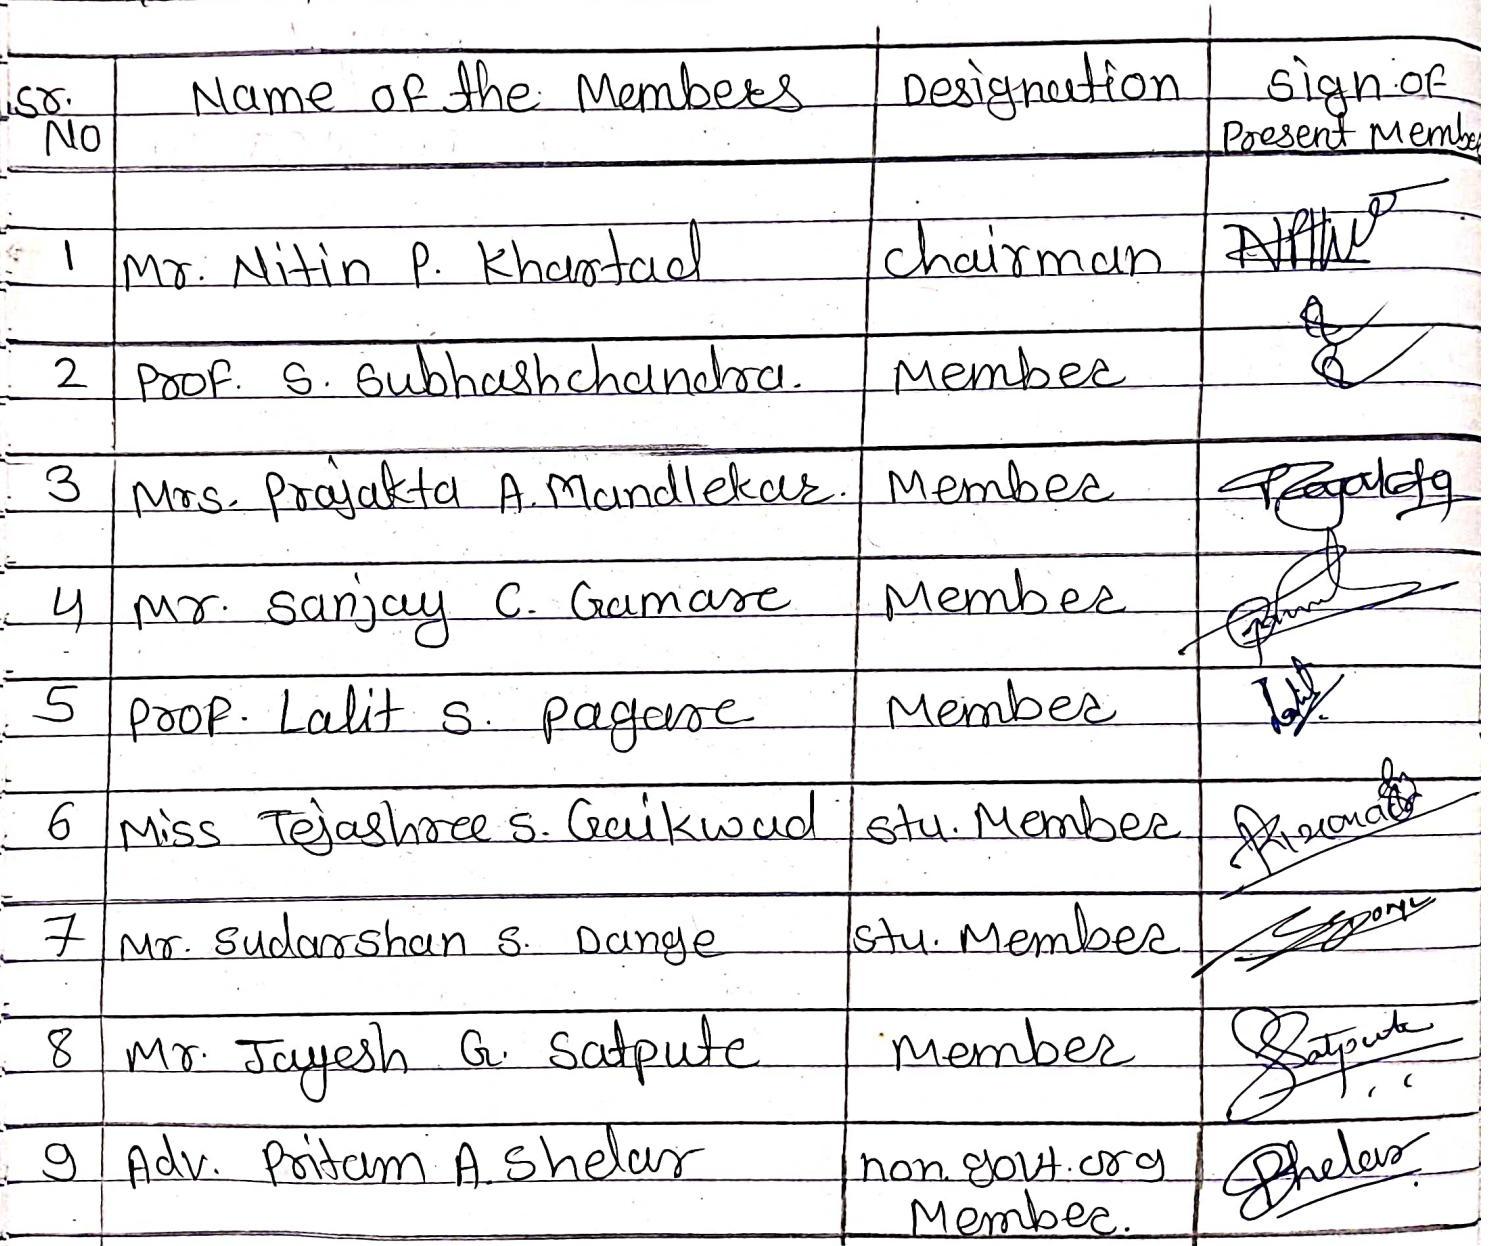 Sr. No Name of the Members Designation Sign of Present Membe
1 Mr. Nitin P. Khartad Chairman
2 Prof. S. Subhashchandra. Member
3 Mrs. Prajakta A. Mandlekar. Member
4 Mr. Sanjay C. Gamare Member
5 Prof. Lalit S. Pagare Member Lalit
6 Miss Tejashree S. Gaikwad Stu. Member
7 Mr. Sudarshan S. Dange Stu. Member
8 Mr. Jayesh G. Satpute Member Satpute
9 Adv. Pritam A. Shelar non. govt. org Member. Shelar